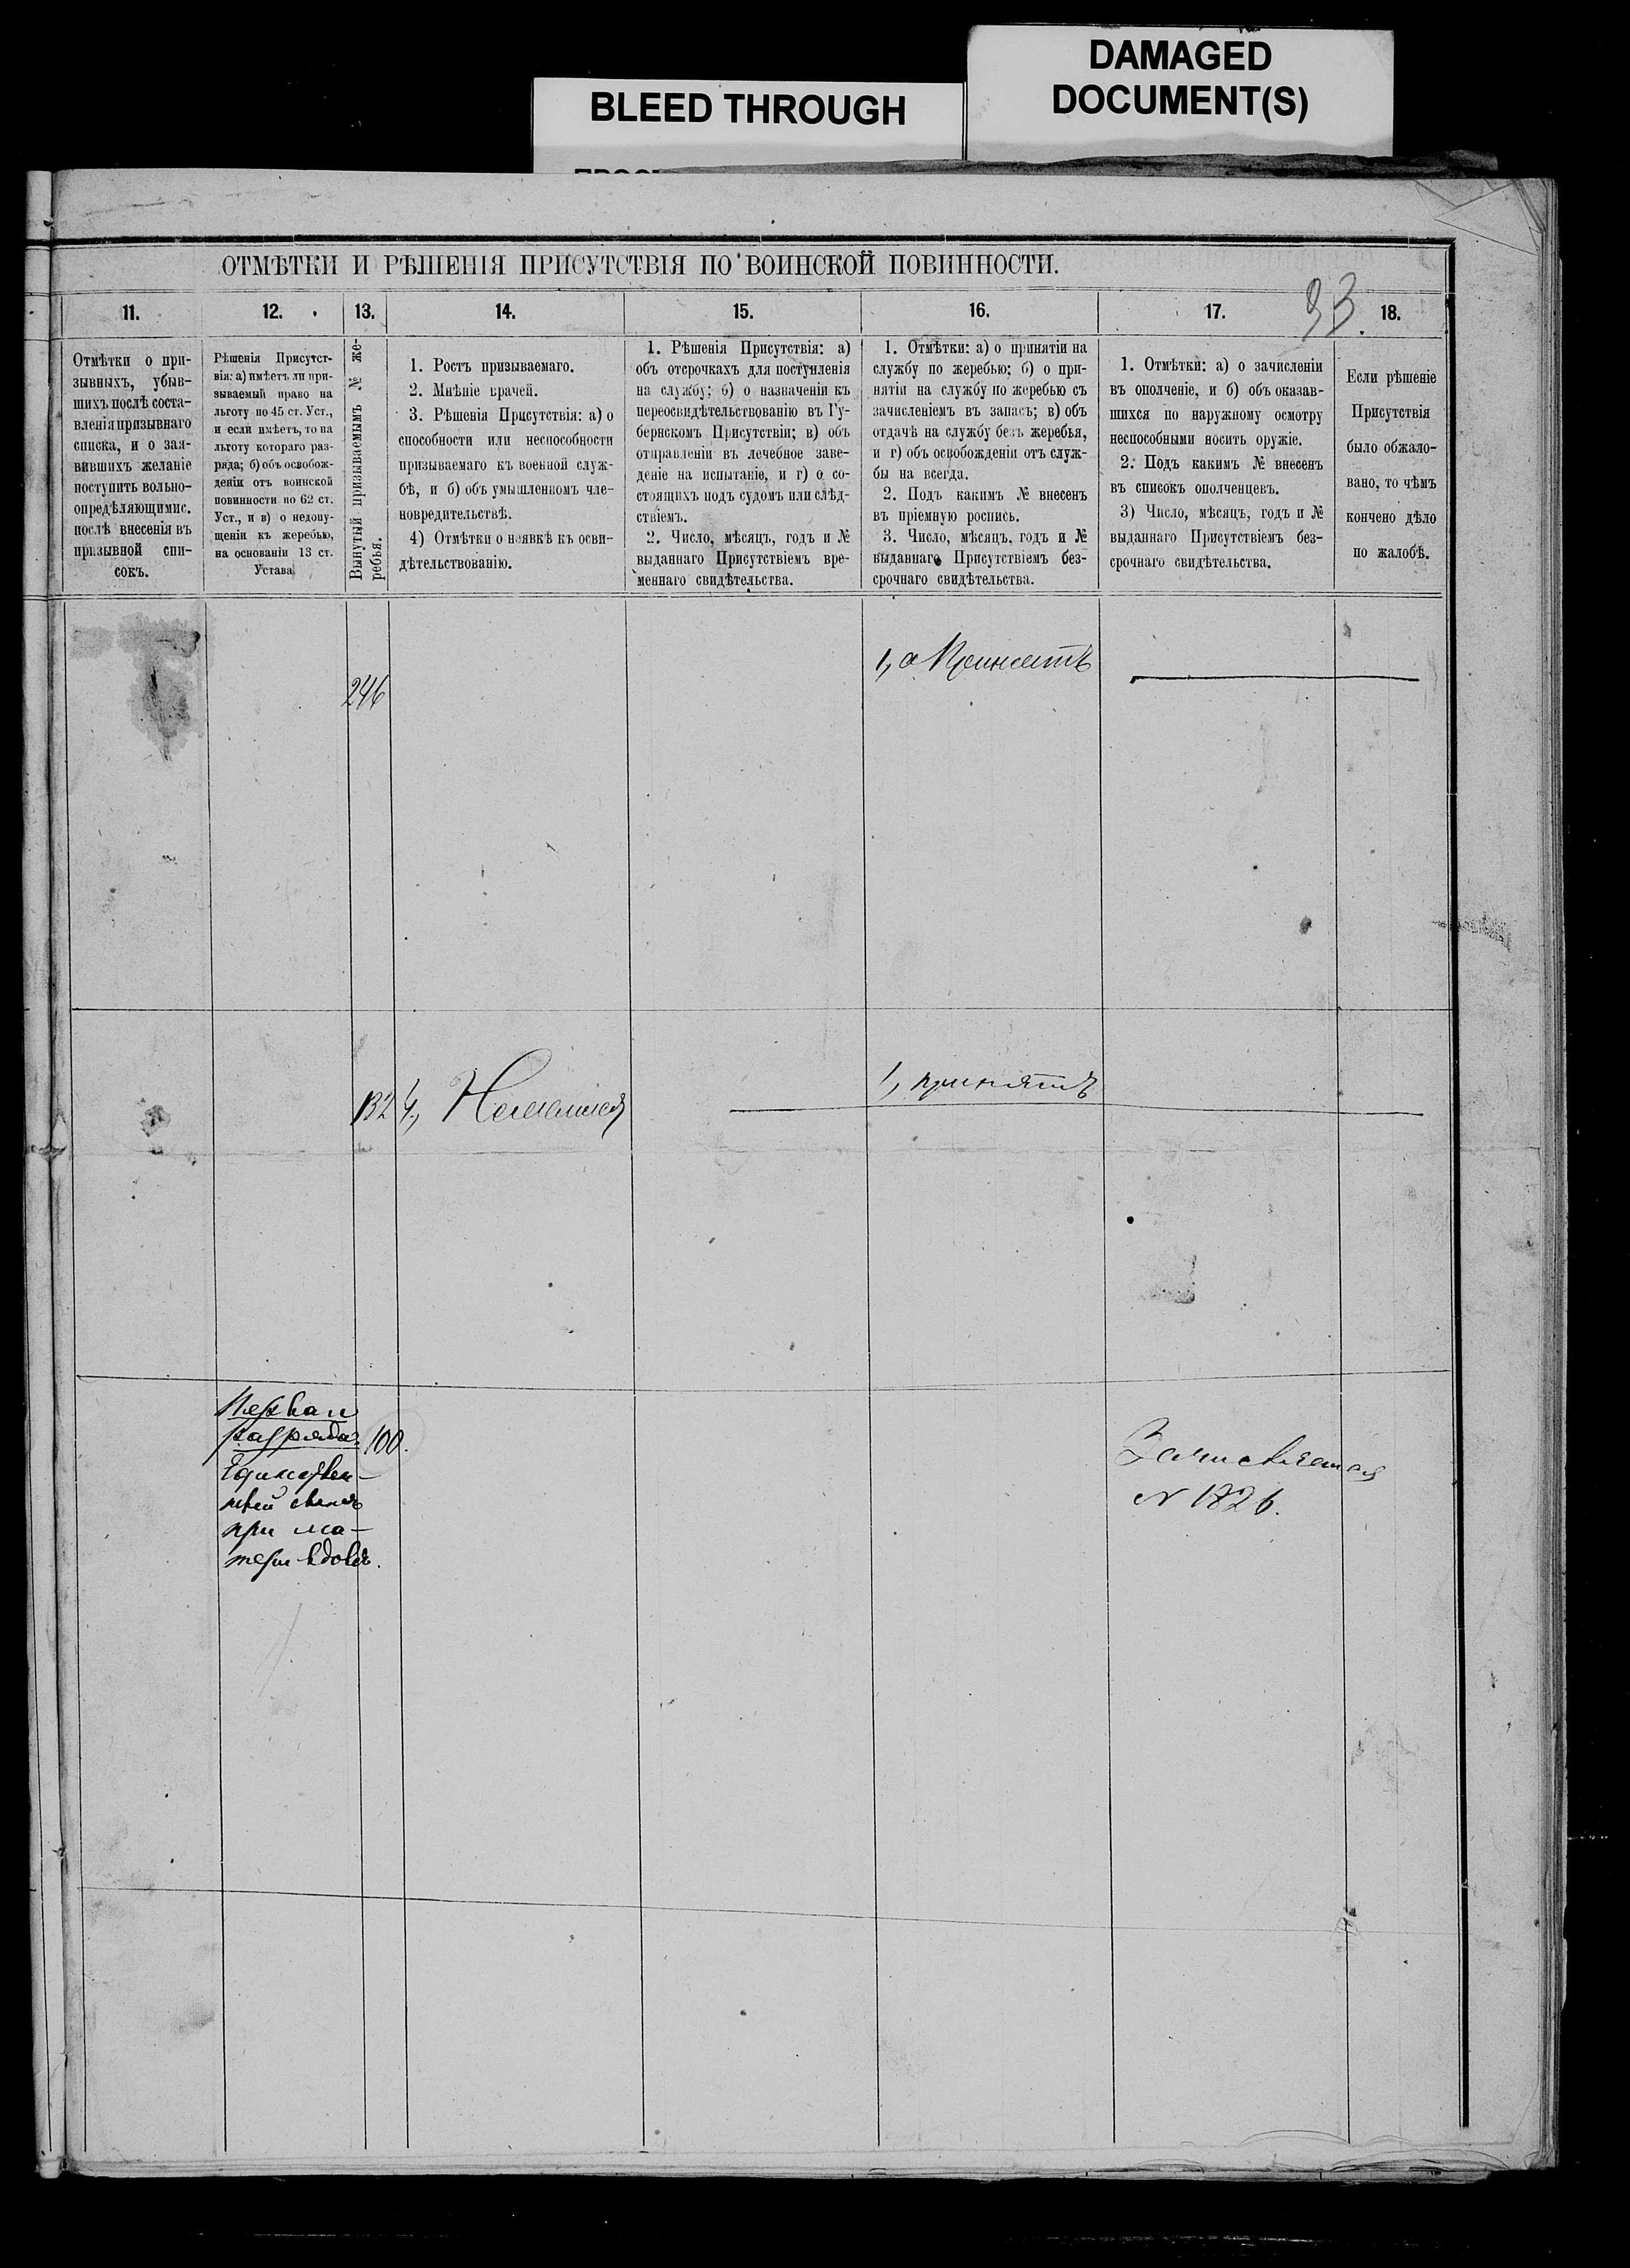 BLEED THROUGH
DAMAGED
DOCUMENT(S)
ОТМѢТКИ И РѢШЕНІЯ ПРИСУТСТВІЯ ПО ВОИНСКОЙ ПОВИННОСТИ.
93
11.
12.
13.
14.
15.
16.
17.
18.
Отмѣтки о при-
зывныхъ, убыв-
шихъ послѣ соста-
вленія призывнаго
списка, и о зая-
вившихъ желаніе
поступить вольно-
опредѣляющимис.
послѣ внесенія въ
призывной спи-
сокъ.
Рѣшенія Присутст-
вія: а) имѣетъ ли при-
зываемый право на
льготу по 45 ст. Уст.,
и если имѣетъ, то на
льготу котораго раз-
ряда; б) объ освобож-
деніи отъ воинской
повинности по 62 ст.
Уст., и в) о недопу-
щеніи къ жеребью,
на основаніи 13 ст.
Устава
Вынутый призываемымъ № же-
ребья.
1. Ростъ призываемаго.
2. Мнѣніе врачей.
3. Рѣшенія Присутствія: а) о
способности или неспособности
призываемаго къ военной служ-
бѣ, и б) объ умышленномъ чле-
новредительствѣ.
4) Отмѣтки о неявкѣ къ осви-
дѣтельствованію.
1. Рѣшенія Присутствія: а)
объ отсрочкахъ для поступленія
на службу; б) о назначеніи къ
переосвидѣтельствованію въ Гу-
бернскомъ Присутствіи; в) объ
отправленіи въ лечебное заве-
деніе на испытаніе, и г) о со-
стоящихъ подъ судомъ или слѣд-
ствіемъ.
2. Число, мѣсяцъ, годъ и №
выданнаго Присутствіемъ вре-
меннаго свидѣтельства.
1. Отмѣтки: а) о принятіи на
службу по жеребью; б) о при-
нятіи на службу по жеребью съ
зачисленіемъ въ запасъ; в) объ
отдачѣ на службу безъ жеребья,
и г) объ освобожденіи отъ служ-
бы на всегда.
2. Подъ какимъ № внесенъ
въ пріемную роспись.
3. Число, мѣсяцъ, годъ и №
выданнаго Присутствіемъ без-
срочнаго свидѣтельства.
1. Отмѣтки: а) о зачисленіи
въ ополченіе, и б) объ оказав-
шихся по наружному осмотру
неспособными носить оружіе.
2. Подъ какимъ № внесенъ
въ списокъ ополченцевъ.
3) Число, мѣсяцъ, годъ и №
выданнаго Присутствіемъ без-
срочнаго свидѣтельства.
Если рѣшеніе
Присутствія
было обжало-
вано, то чѣмъ
кончено дѣло
по жалобѣ.
246
1, а Принятъ
132
4,
1, принятъ
Перваго
разряда.
Единствен-
ный сынъ
при ма-
тери вдовѣ.
100.
Зачисляется
N 1826.